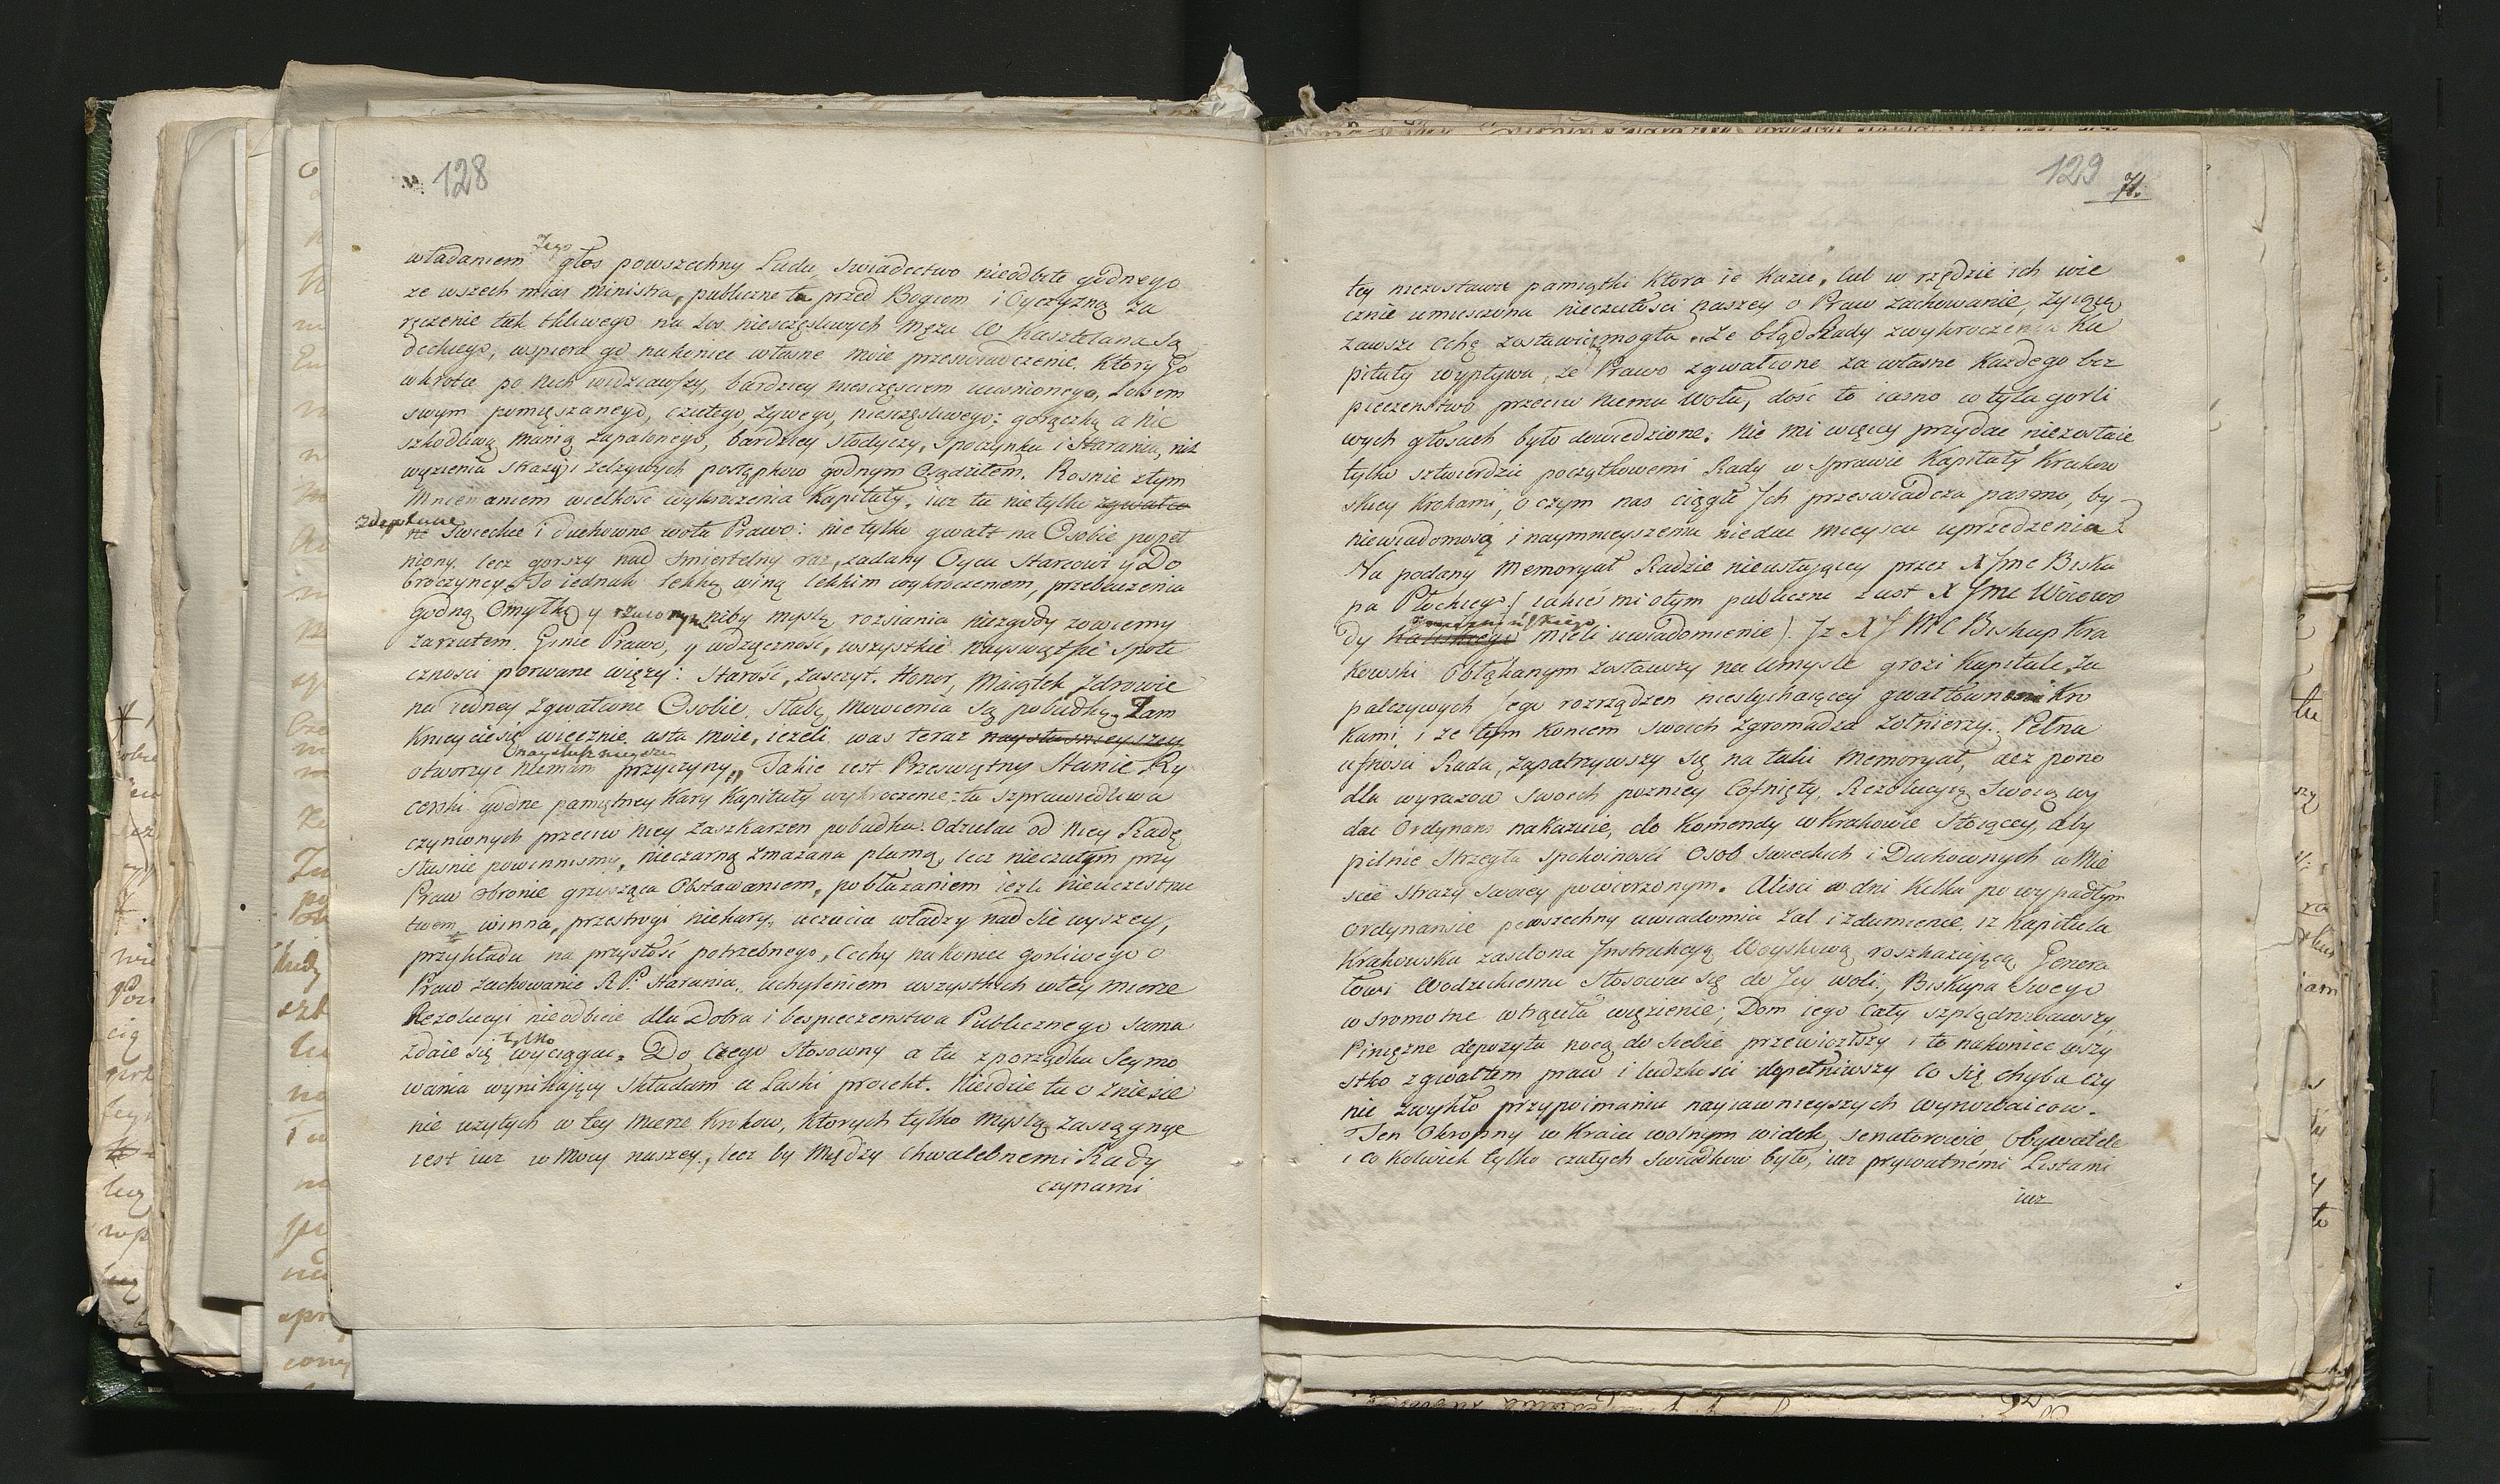 128
władaniem Jego głos powszechny Ludu, swiadectwo nieodbite godnego
ze wszech miar Ministra, publiczne tu przed Bogiem i Oyczyzną za
ręczenie tak tkliwego na Los niesczęsliwych Męża W Kasztelana Są
deckiego, wspiera go nakoniec własne moie przeswiadczenie. Ktory Go
wkrotce po nich widziawszy, bardziey niesczęsciem ucisnionego, Losem
swym pomięszanego, czułego, żywego, niesczęsliwego; gorączką a nie
szkodliwą Manią zapalonego, bardziey słodyczy, spoczynku i starania, niż
więzienia skazy i zelzywych postępkow godnym osądziłem. Rosnie ztym
Mniemaniem wielkość wykroczenia Kapituły, iuz tu nie tylko zgwałco
zdeptane
ne Swieckie i duchowne woła Prawo: nie tylko gwałt na Osobie popeł
niony, lecz gorszy nad smiertelny raz, zadany Oycu Starcowi y Do
broczyncy. To iednak lekką winą lekkim wykroczeniem, przebaczenia
godną Omyłką y rzuconym niby myslą rozsiania niezgody zowiemy
zarzutem. Ginie Prawo, y wdzęczność, wszystkie nayswiętsze społe
czności porwane więzy: Starość, zasczyt, Honor, Maiątek zdrowie
na iedney zgwałcone Osobie, słabą mowienia są pobudką. Zam
kniycie się wiecznie usta moie, ieżeli was teraz naysłusznieyszey
naysłusznieyszey
otworzyć niemam przyczyny. Takie iest Przeswiętny Stanie Ry
cerski godne pamiętney kary Kapituły wykroczenie: ta szprawiedliwa
czynionych przeciw niey zaskarzen pobudka. Odzielać od niey Radę
słusnie powinnismy, nieczarną zmazana plamą, lecz nieczułym przy
Praw obronie grzysząca Obstawaniem, pobłazaniem ieżli nieuczestni
twem winna, przestrogi niekary, uczucia władzy nad sie wyszey,
przykładu na przyszłość potrzebnego, Cechy nakoniec gorliwego o
Praw zachowanie R. P. starania, uchyleniem wszystkich wtey mierze
Rezolucyi nieodbicie dla Dobra i bespieczenstwa Publicznego sama
zdaie się tylko wyciągać. Do czego stosowny a tu zporządku Seymo
wania wynikaiący składam u Laski proiekt. Nieidzie tu o zniesie
nie uzytych w tey mierze Krokow, ktorych tylko myslą zasięgnąc
iest iuz w mocy naszey, lecz by między chwalebnemi Rady
czynami
129 71.
tey niezostawic pamiątki ktora ie kazie, lub w rzędzie ich wie
cznie umiesczona nieczułości naszey o Praw zachowanie, zyiącą
zawsze Cechę zostawić mogła. Ze błąd Rady zwykroczenia Ka
pituły wypływa, że Prawo zgwałcone za własne kazdego bez
pieczenstwo przeciw niemu woła, dość to iasno w tylu gorli
wych głosach było dowiedzione. Nic mi więcey przydac niezostaie
tylko sztwierdzic początkowemi Rady w sprawie Kapituły Krakow
skiey Krokami, o czym nas ciągłe Jch przeswiadcza pasmo, by
niewiadomosć i naymnieyszemu niedac mieysca uprzedzeniu.
Na podany Memoryał Radzie nieustaiącey przez X Jmc Bisku
pa Płockiego (iakieśmi otym publiczne z ust X Jmc Woiewo
dy Kaliskiego mieli uwiadomienie) Iz X J MC Biskup Kra
kowski Obłąkanym zostawszy na umysle grozi Kapitule, za
palczywych Jego rozrządzen niesłychaiącey gwałtownemi Kro
kami i ze tym koncem swoich zgromadza zołnierzy. Pełna
ufnosci Rada, zapatrzywszy się na taki Memoryał, acz pono
dla wyrazow swoich pozniey Cofnięty, Rezolucyią swoią wy
dać Ordynans nakazuie, do Komendy w Krakowie stoiącey, aby
pilnie strzegła spokoiności Osob swieckich i Duchownych w Mie
scie strazy swoiey powierzonym. Alisci w dni kilka po wypadłym
ordynansie powszechny uwiadomia zal i zdumienie, iz Kapituła
Krakowska zaslona Jnstrukcyą Woyskową roszkazuiącą Genera
łowi Wodzickiemu stosować się do Jey woli, Biskupa swego
w sromotne wtrąciła więzienie; Dom iego cały szplądrowawszy,
Pieniężne depozyta nocą do siebie przewiozłszy i to nakoniec wszy
stko zgwałtem praw i ludzkości dopełniwszy co się chyba czy
nić zwykło przypoimaniu nayiawnieyszych wywołaicow.
Ten Okropny w Kraiu wolnym widok, Senatorowie Obywatele
i co kolwiek tylko czułych swiadkow było, iuz prywatnemi Listami
iuz